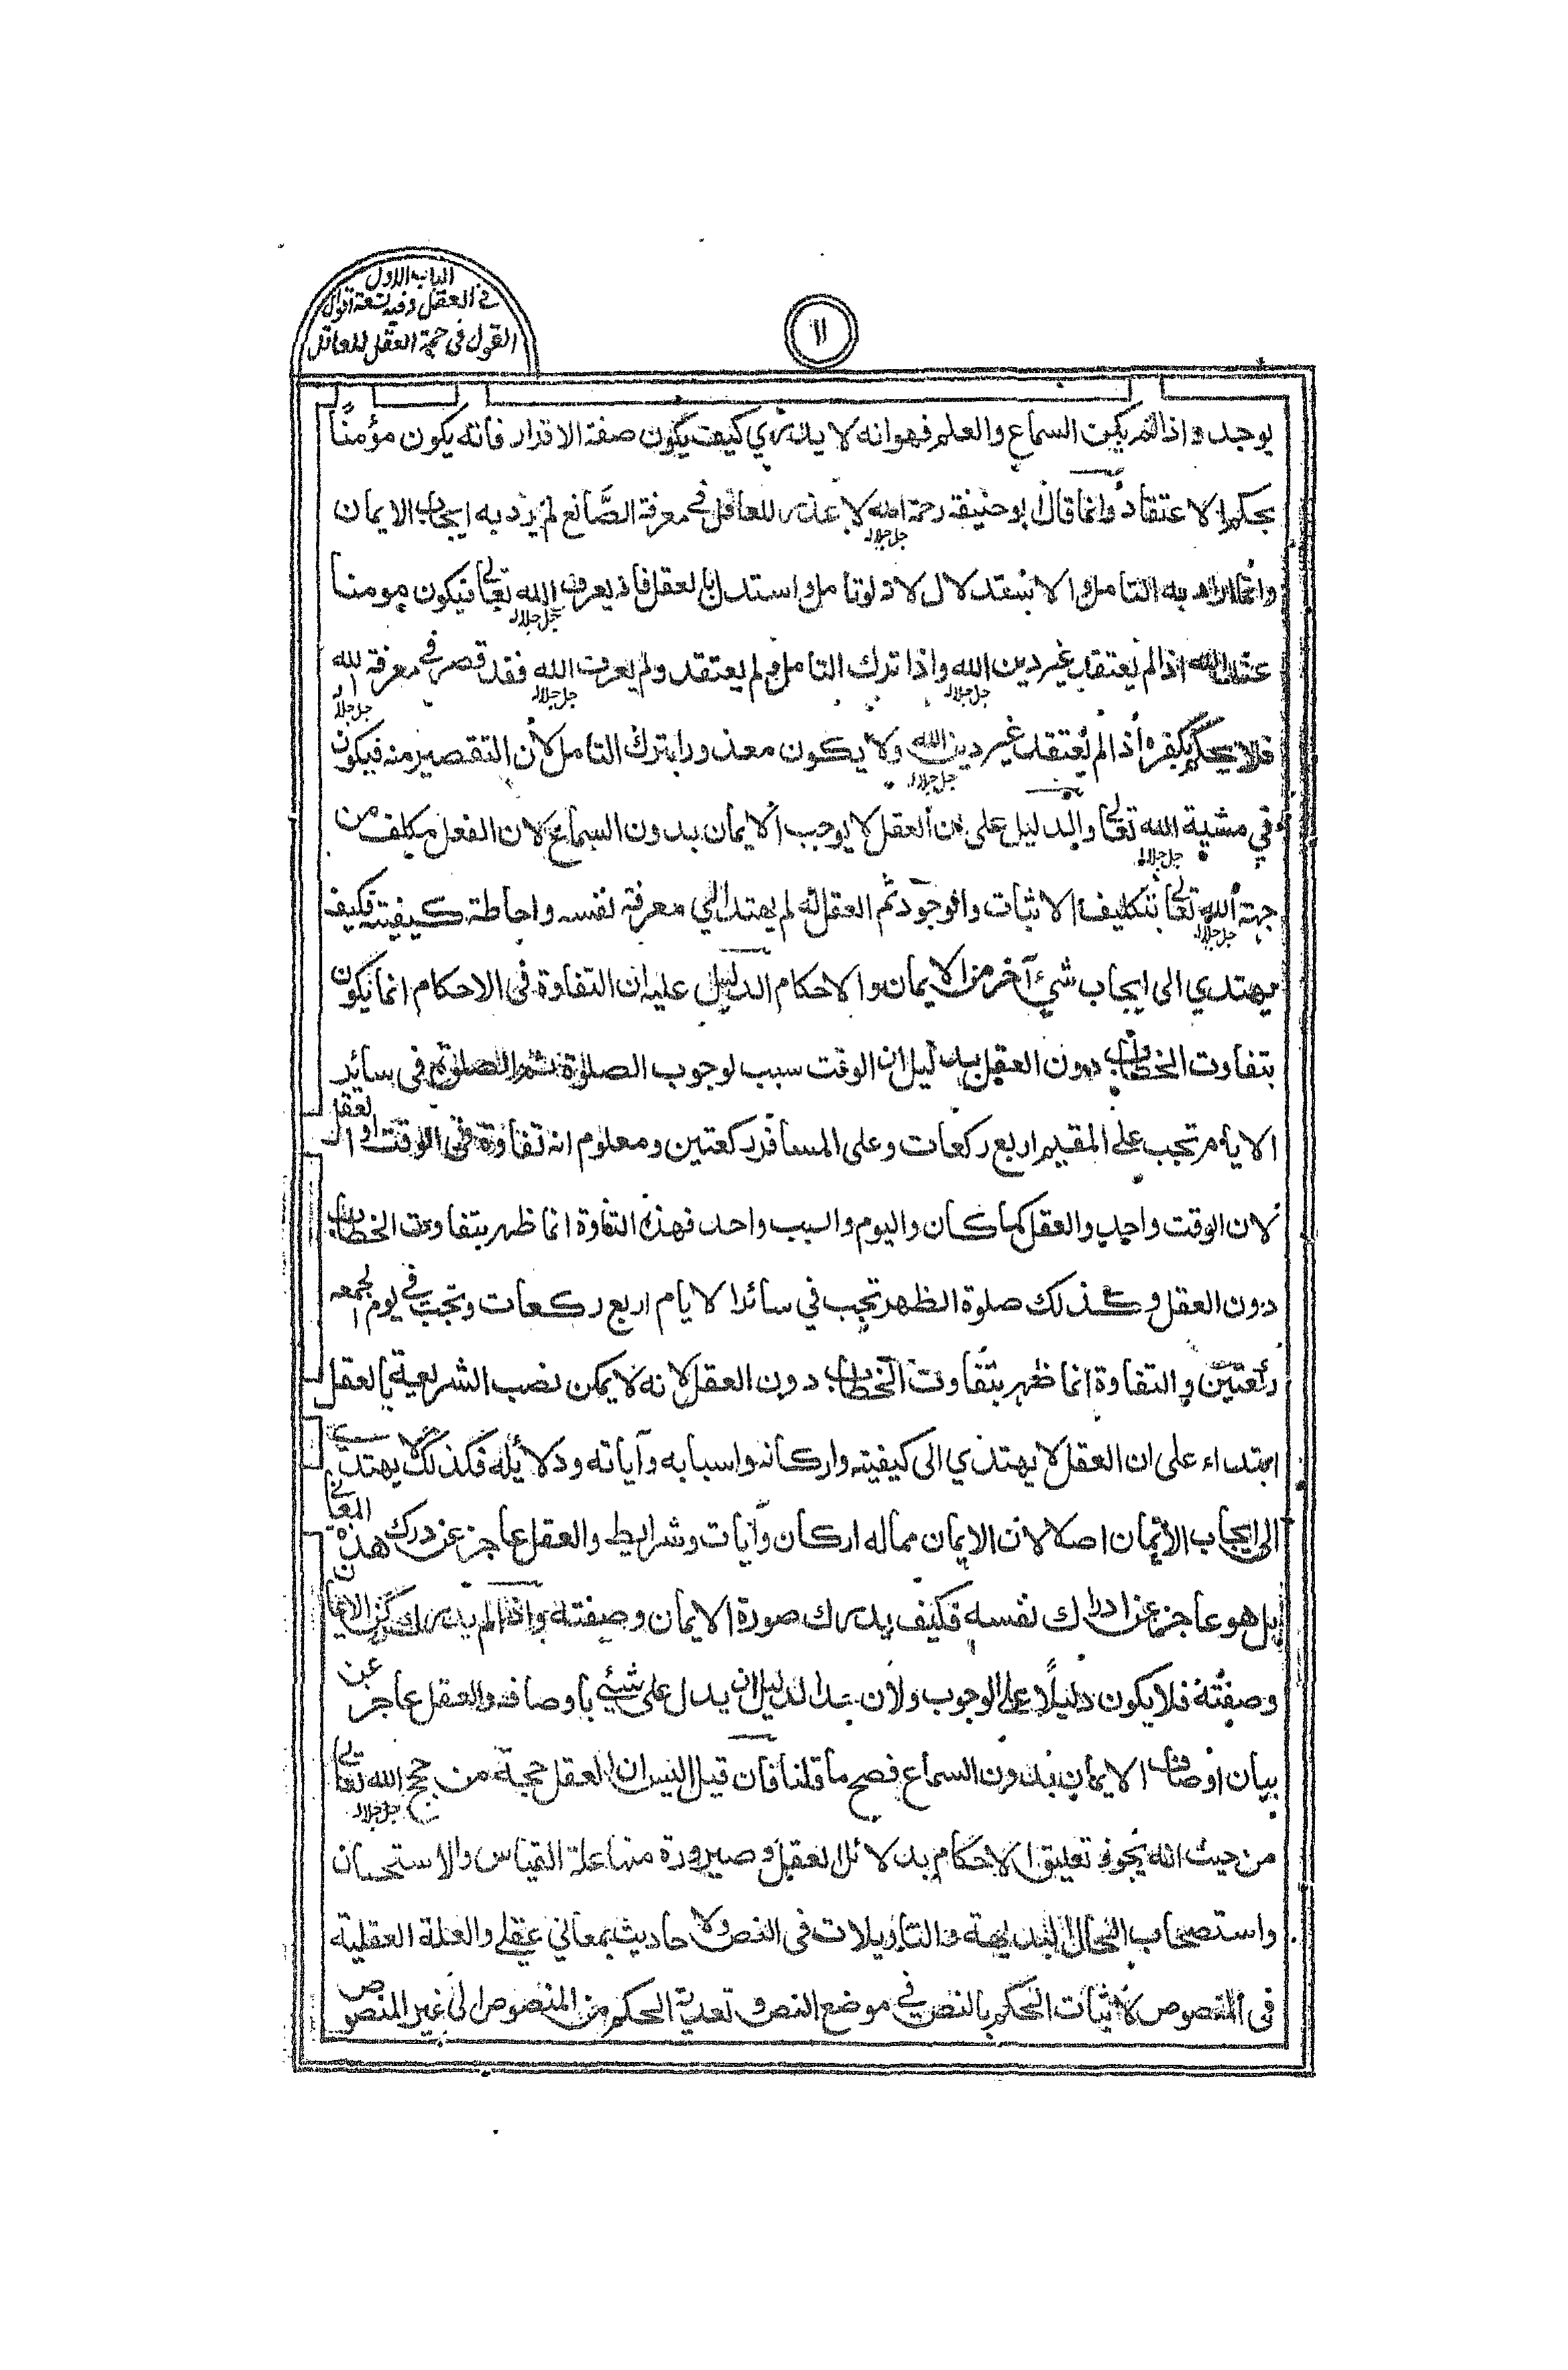 الباب الاول
في العقل وفيه تسعة اقوال
القول في حجة العقل للعاقل
١١
يوجد واذا لم يكن السماع والعلم فهو انه لا يدري كيف يكون صفة الاقدار فانه يكون مؤمنًا
بحكم الاعتقاد وانما قال ابو حنيفة رحمة الله لا عذر للعاقل في معرفة الصَّانع لم يرد به ايجاب الايمان
جل جلاله
وانما اراد به التامل والاستدلال لانه لو تامل واستدل بالعقل فانه يعرف الله تعالى فيكون مومنا
جل جلاله
عند الله اذا لم يعتقد غير دين الله واذا ترك التامل ولم يعتقد ولم يعرف الله فقد قصر في معرفة الله
جل جلاله جل جلاله جل جلاله
فلا يحكم بكفره اذا لم يعتقد غير دين الله ولا يكون معذورا بترك التامل لان التقصير منه فيكون
جل جلاله
في مشية الله تعالى والدليل على ان العقل لا يوجب الايمان بدون السماع لان الفعل مكلف من
جل جلاله
جهة الله تعالى بتكليف الاثبات والوجود ثم العقل انه لم يهتد الي معرفة نفسه واحاطة كيفيته فكيف
جل جلاله
يهتدي الى ايجاب شئ آخر من الايمان والاحكام الدليل عليه ان التفاوة في الاحكام انما يكون
بتفاوت الخطاب دون العقل بدليل ان الوقت سبب لوجوب الصلوة ثم الصلوة في سائر
الايام تجب على المقيم اربع ركعات وعلى المسافر ركعتين ومعلوم انه تفاوة في الوقت او العقل
لان الوقت واحد والعقل كما كان واليوم والسبب واحد فهذه التفاوة انما ظهر بتفاوت الخطاب
دون العقل وكذلك صلوة الظهر تجب في سائر الايام اربع ركعات وتجب في يوم الجمعه
ركعتين والتفاوة انما ظهر بتفاوت الخطاب دون العقل لانه لا يمكن نصب الشريعية بالعقل
ابتداء على ان العقل لا يهتدي الى كيفيته واركانه واسبابه وآياته ودلائله فكذلك لا يهتدي
الى ايجاب الايمان اصلا لان الايمان مماله اركان وآيات وشرايط والعقل عاجز عن درك هذه المعاني
بل هو عاجز عن ادراك نفسه فكيف يدرك صورة الايمان وصفته واذا لم يدرك ركن الايمان
وصفته فلا يكون دليلًا على الوجوب ولان حد الدليل ان يدل على شئي باوصافه والعقل عاجز عن
بيان اوصاف الايمان بدون السماع فصح ما قلنا فان قيل اليس ان العقل حجة من حجج الله تعالى
جل جلاله
من حيث انه يجوز تعليق الاحكام بدلائل العقل وصيرورة منها علة القياس والاستحسان
واستصحاب الحال البديهة والتاويلات في النص والاحاديث بمعاني عقلي والعلة العقلية
في المنصوص لاثبات الحكم بالنص في موضع النص وتعدية الحكم من المنصوص الى غير المنصوص